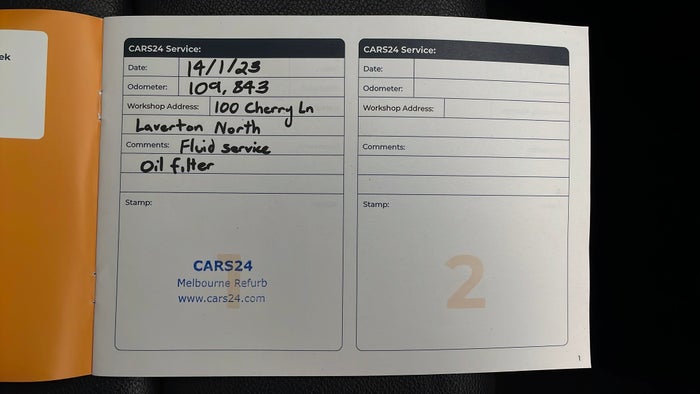 ek
CARS24 Service:
Date: 14/1/23
Odometer: 109,843
Workshop Address: 100 Cherry Ln
Laverton North
Comments: Fluid service
Oil filter
Stamp:
1
CARS24
Melbourne Refurb
www.cars24.com
CARS24 Service:
Date:
Odometer:
Workshop Address:
Comments:
Stamp:
2
1